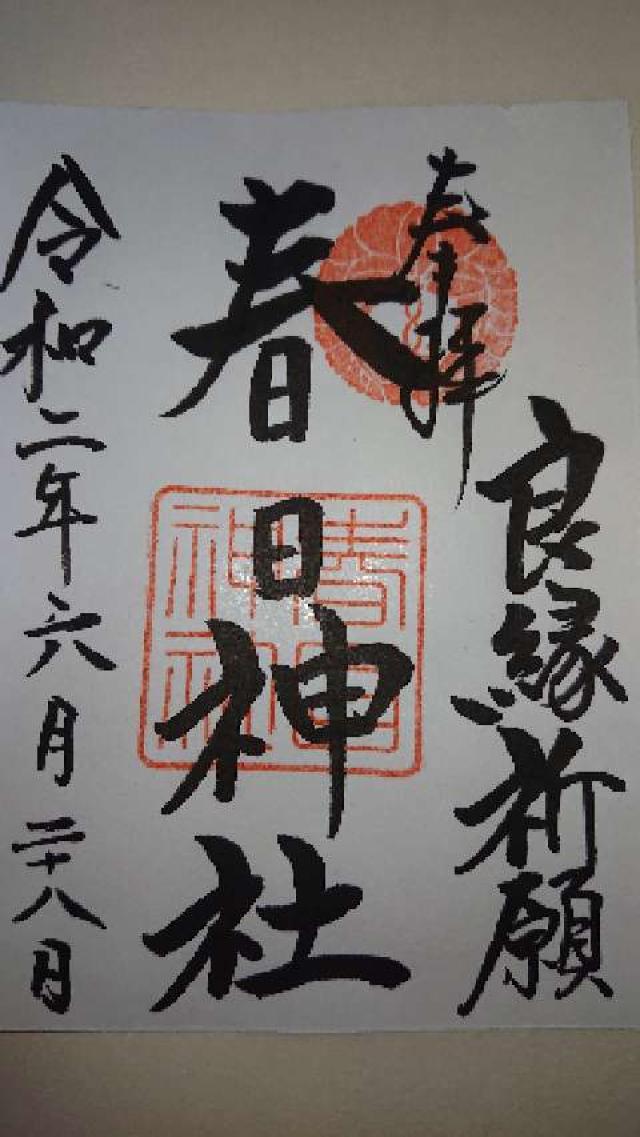 奉拝
良縁祈願
春日神社
春日神社
令和二年六月二十八日